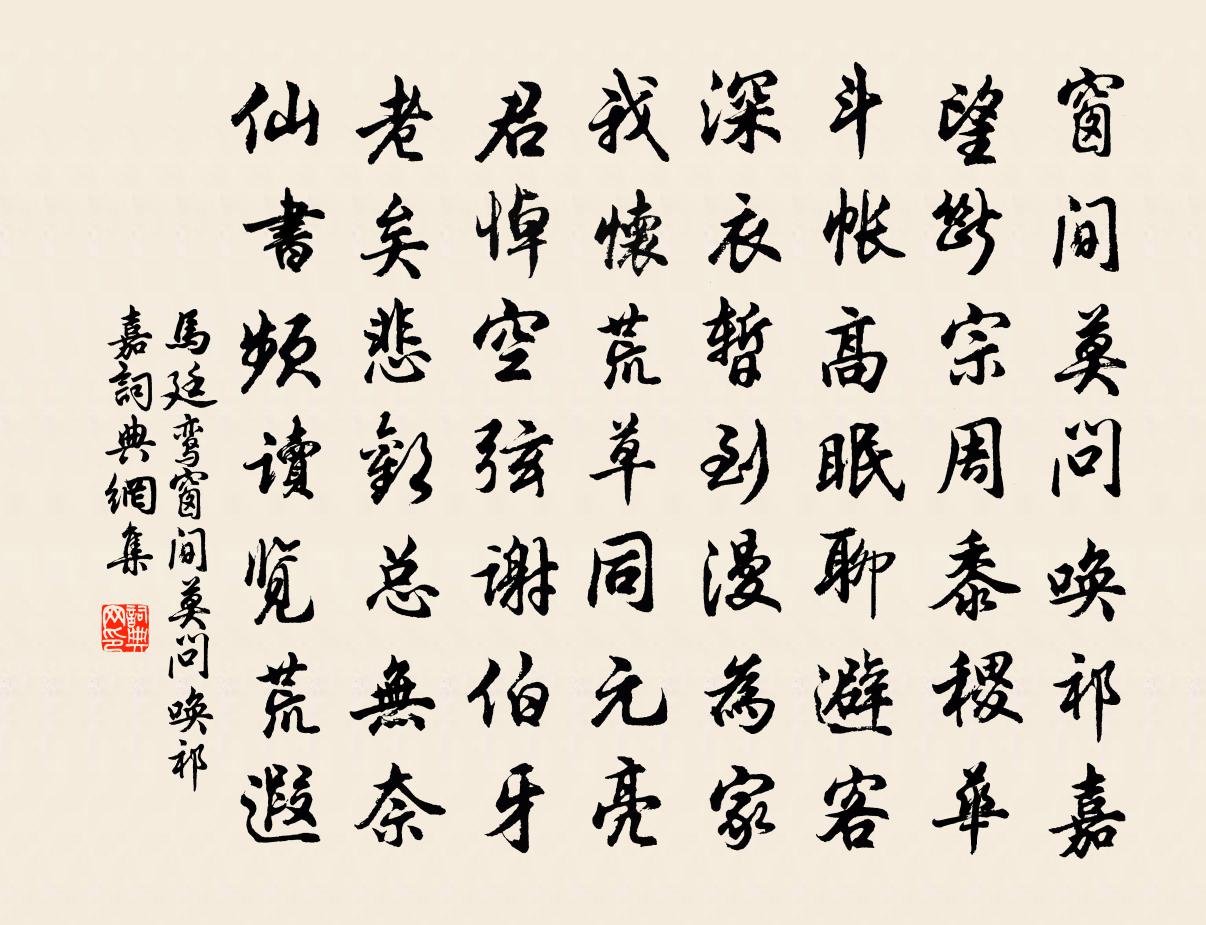 窗间莫问唤祁嘉
望断宗周黍稷华
斗帐高眠聊避客
深衣暂到漫為家
我懷荒草同元亮
君悼空弦谢伯牙
老矣悲歡总無奈
仙書频讀览荒遐
馬廷鸾窗间莫问唤祁
嘉詞典網集
詞典网印